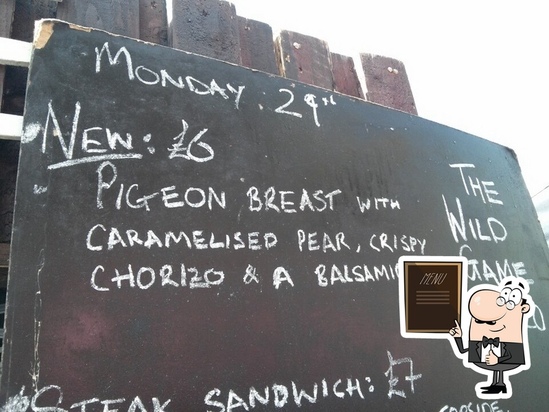 MONDAY 29TH
NEW: £6
PIGEON BREAST WITH
CARAMELISED PEAR, CRISPY
CHORIZO & A BALSAMIC
THE
WILD
GAME
MENU
STEAK SANDWICH: £7